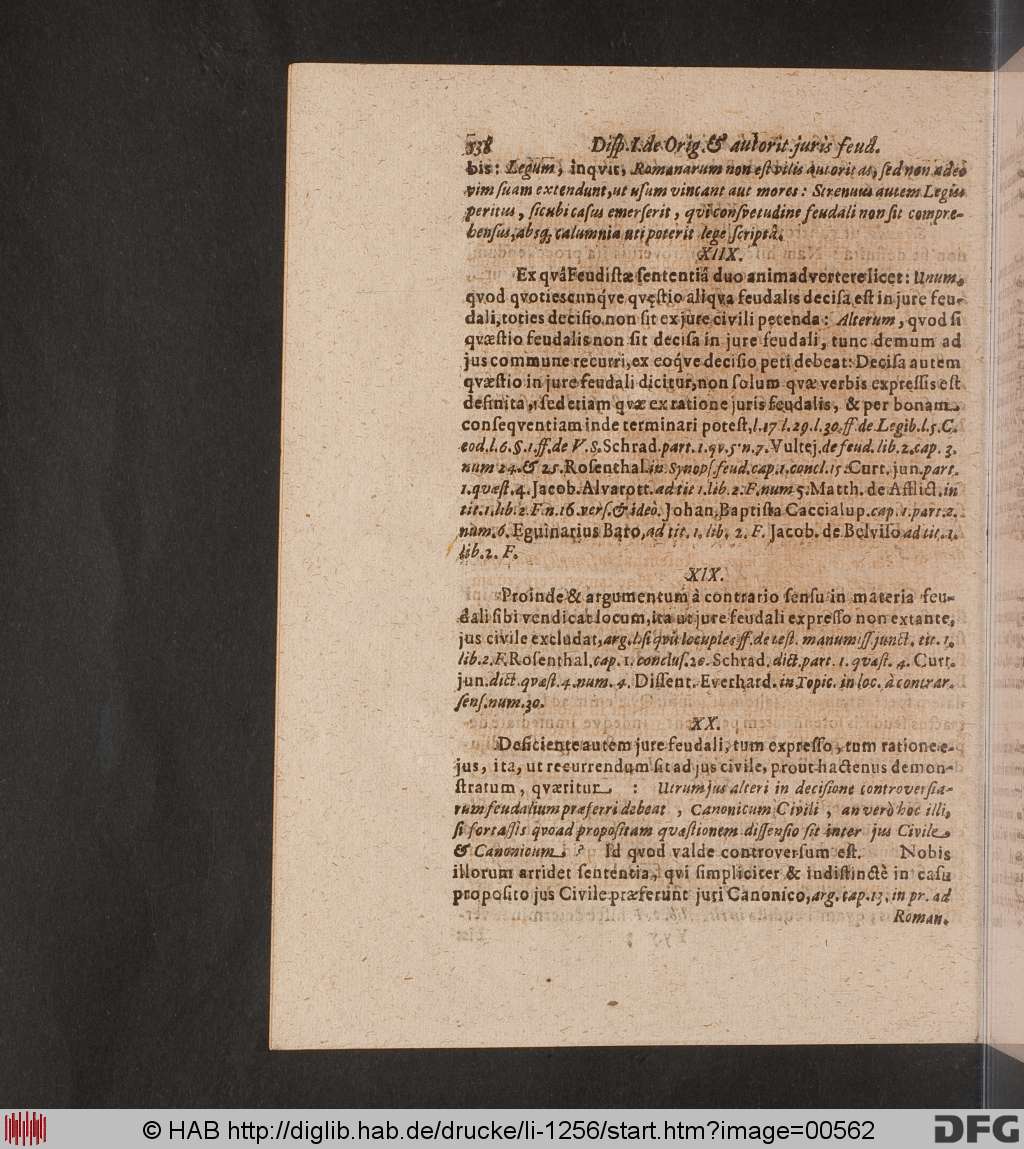 538 Disp. I. de Orig. & autorit. juris feud.
bis: Legum, inqvit, Romanarum non est vilis autoritas, sed non adeò
vim suam extendunt, ut usum vincant aut mores: Strenuus autem Legis
peritus, sicubi casus emerserit, qvi consvetudine feudali non sit compre-
hensus, absq; calumnia uti poterit lege scriptâ.
XIIX.
Ex qvâ Feudistæ sententiâ duo animadvertere licet: Unum,
qvod qvotiescunqve qvęstio aliqva feudalis decisa est in jure feu-
dali, toties decisio non sit ex jure civili petenda: Alterum, qvod si
qvæstio feudalis non sit decisa in jure feudali, tunc demum ad
jus commune recurri, ex eoqve decisio peti debeat: Decisa autem
qvæstio in jure feudali dicitur, non solum qvæ verbis expressis est
definita, sed etiam qvæ ex ratione juris feudalis, & per bonam
conseqventiam inde terminari potest, l. 17 l. 29. l. 30. ff de Legib. l. 5. C.
eod. l. 6. §. 1. ff. de V. S. Schrad. part. 1. qv. 5 n. 7. Vultej. de feud. lib. 2. cap. 3.
num 24. & 25. Rosenthal. in Synops. feud. cap. 1. concl. 15. Curt. jun. part.
1. quæst. 4. Jacob. Alvarott. ad tit 1. lib. 2. F. num 5. Matth. de Afflict. in
tit. 1. lib. 2. F. n. 16. vers. & ideò. Johan. Baptista Caccialup. cap. 1. part. 2.
num. 6. Eguinarius Baro, ad tit. 1. lib. 2. F. Jacob. de Belviso ad tit. 1.
lib. 2. F.
XIX.
Proinde & argumentum à contrario sensu in materia feu-
dali sibi vendicat locum, ita ut jure feudali expresso non extante,
jus civile excludat, arg. l. si qvis locuples ff. de test. manumiss. junct. tit. 1.
lib. 2. F. Rosenthal. cap. 1. conclus. 20. Schrad. dict. part. 1. qvæst. 4. Curt.
jun. dict. qvæst. 4. num. 4. Dissent. Everhard. in Topic. in loc. à contrar.
sens. num. 30.
XX.
Deficiente autem jure feudali, tum expresso, tum ratione e-
jus, ita, ut recurrendum sit ad jus civile, prout hactenus demon-
stratum, qværitur : Utrum jus alteri in decisione controversia-
rum feudalium præferri debeat, Canonicum Civili, an verò hoc illi,
si fortassis qvoad propositam qvæstionem dissensio sit inter jus Civile
& Canonicum? Id qvod valde controversum est. Nobis
illorum arridet sententia, qvi simpliciter & indistinctè in casu
proposito jus Civile præferunt juri Canonico, arg. cap. 13. in pr. ad
Roman.
© HAB http://diglib.hab.de/drucke/li-1256/start.htm?image=00562
DFG